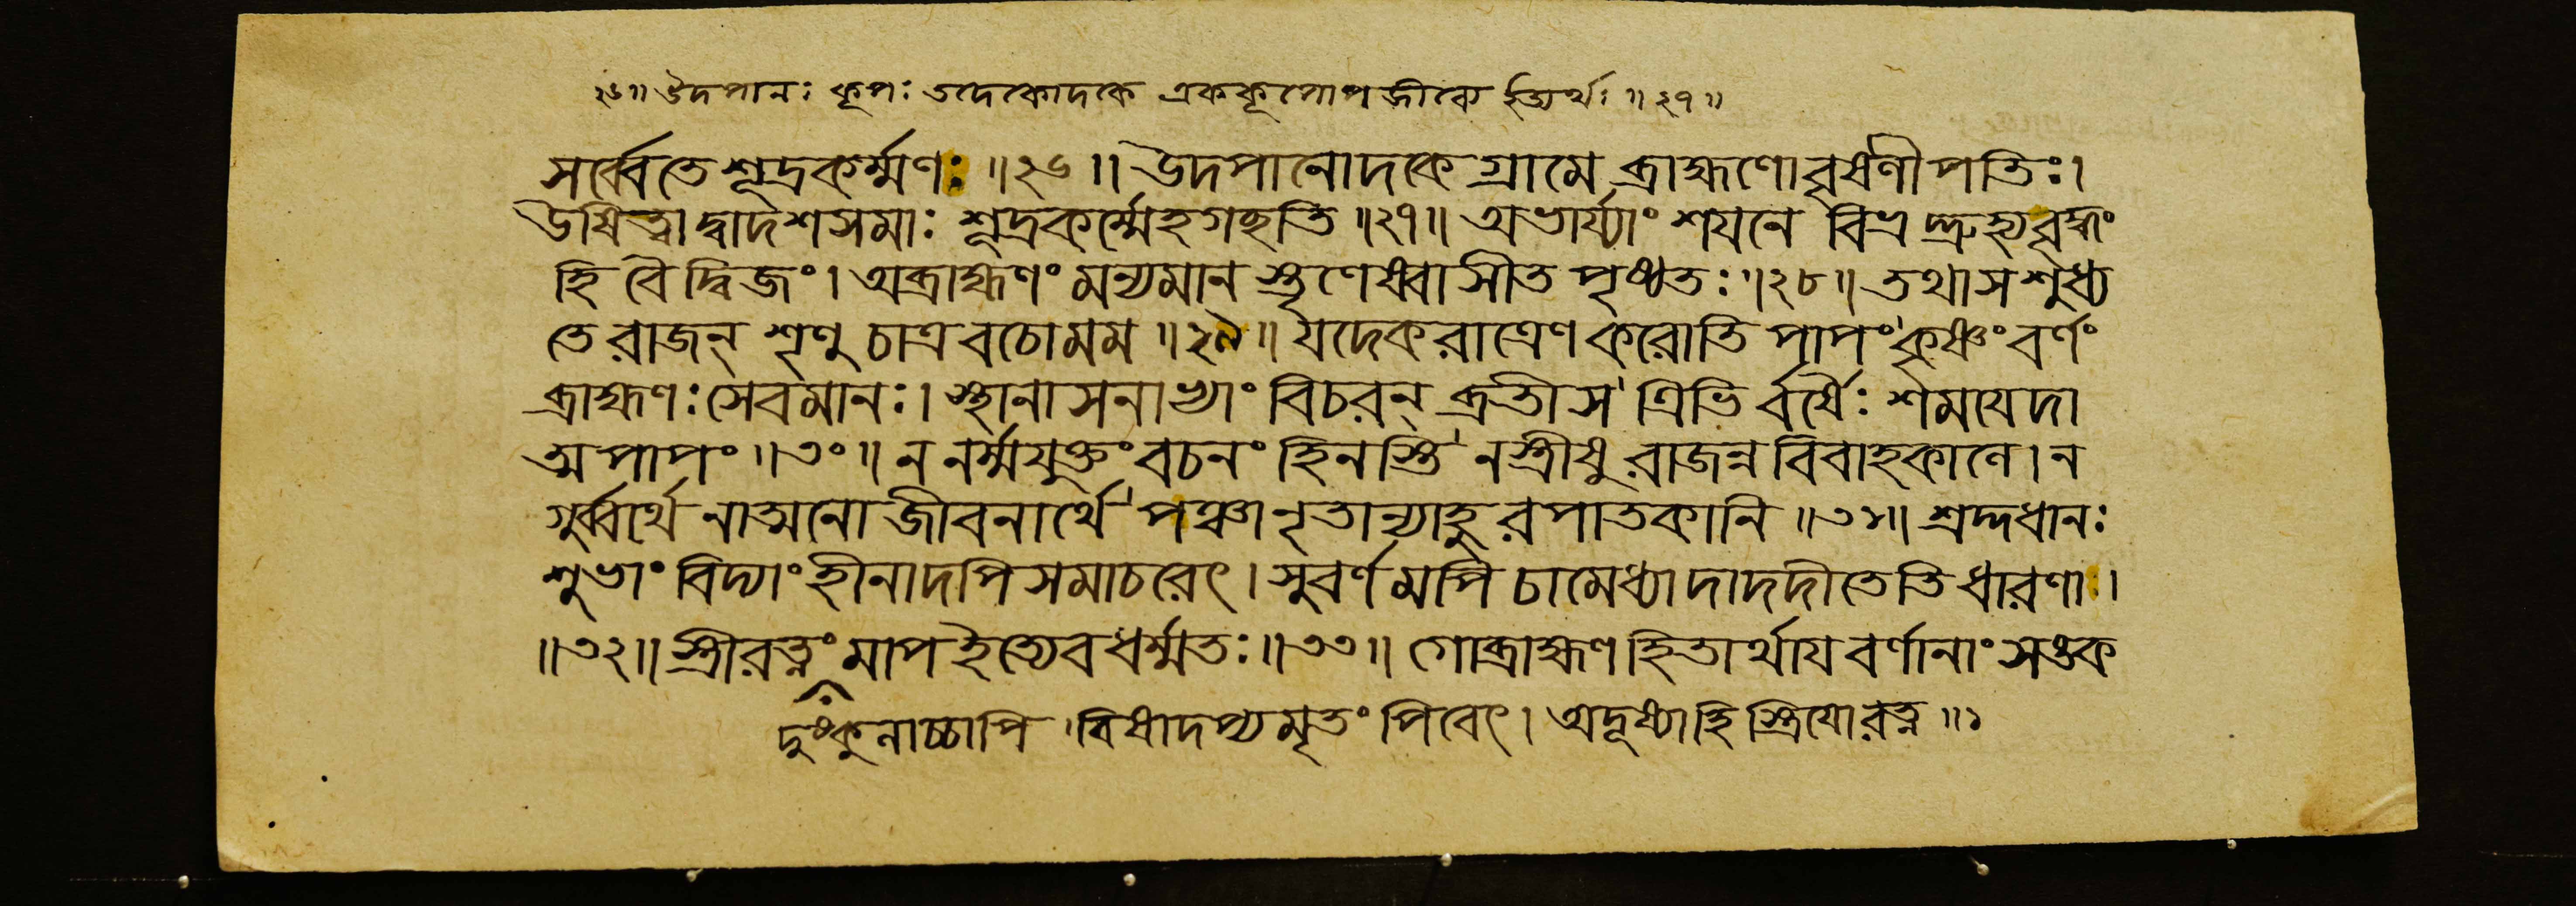 ২৬॥ উদপানঃ কূপঃ তদেকোদকে এককূপোপজীব্যে ইত্যর্থঃ ॥২৭॥
সর্ব্বেতে শূদ্রকর্ম্মণঃ ॥২৬॥ উদপানোদকে গ্রামে ব্রাহ্মণোবৃষলীপতিঃ।
উষিত্বা দ্বাদশসমাঃ শূদ্রকর্ম্মেহগছতি ॥২৭॥ অভার্য্যাং শযনে বিভ্র
হি বৈ দ্বিজং। অব্রাহ্মণং মন্যমান স্তৃণেষ্বাসীত পৃষ্ঠতঃ ॥২৮॥ তথা স শুধ্য
তে রাজন্ শৃণু চাত্র বচোমম ॥২৯॥ যদেকরাত্রেণ করোতি পাপং কৃষ্ণং বর্ণং
ব্রাহ্মণঃ সেবমানঃ। স্থানাসনাভ্যাং বিচরন্ ব্রতী স ত্রিভির্বর্ষৈঃ শমাযেদা
ত্মপাপং ॥৩০॥ ন নর্ম্মযুক্তং বচনং হিনস্তি ন স্ত্রীষু রাজন্ন বিবাহকালে। ন
গুর্ব্বার্থে নাত্মনো জীবনার্থে পঞ্চানৃতান্যাহুরপাতকানি ॥৩১॥ শ্রদ্দধানঃ
শুভাং বিদ্যাং হীনাদপি সমাচরেৎ। সুবর্ণমপি চামেধ্যাদাদদীতেতি ধারণা।
॥৩২॥ স্ত্রীরত্নং মাপ ইত্যেব ধর্ম্মতঃ॥৩৩॥ গোব্রাহ্মণহিতার্থায বর্ণানাং সঙক
দুষ্কুলাচ্চাপি বিষাদপ্যমৃতং পিবেৎ। অদূষ্যাহি স্ত্রিযোরত্ন ॥১